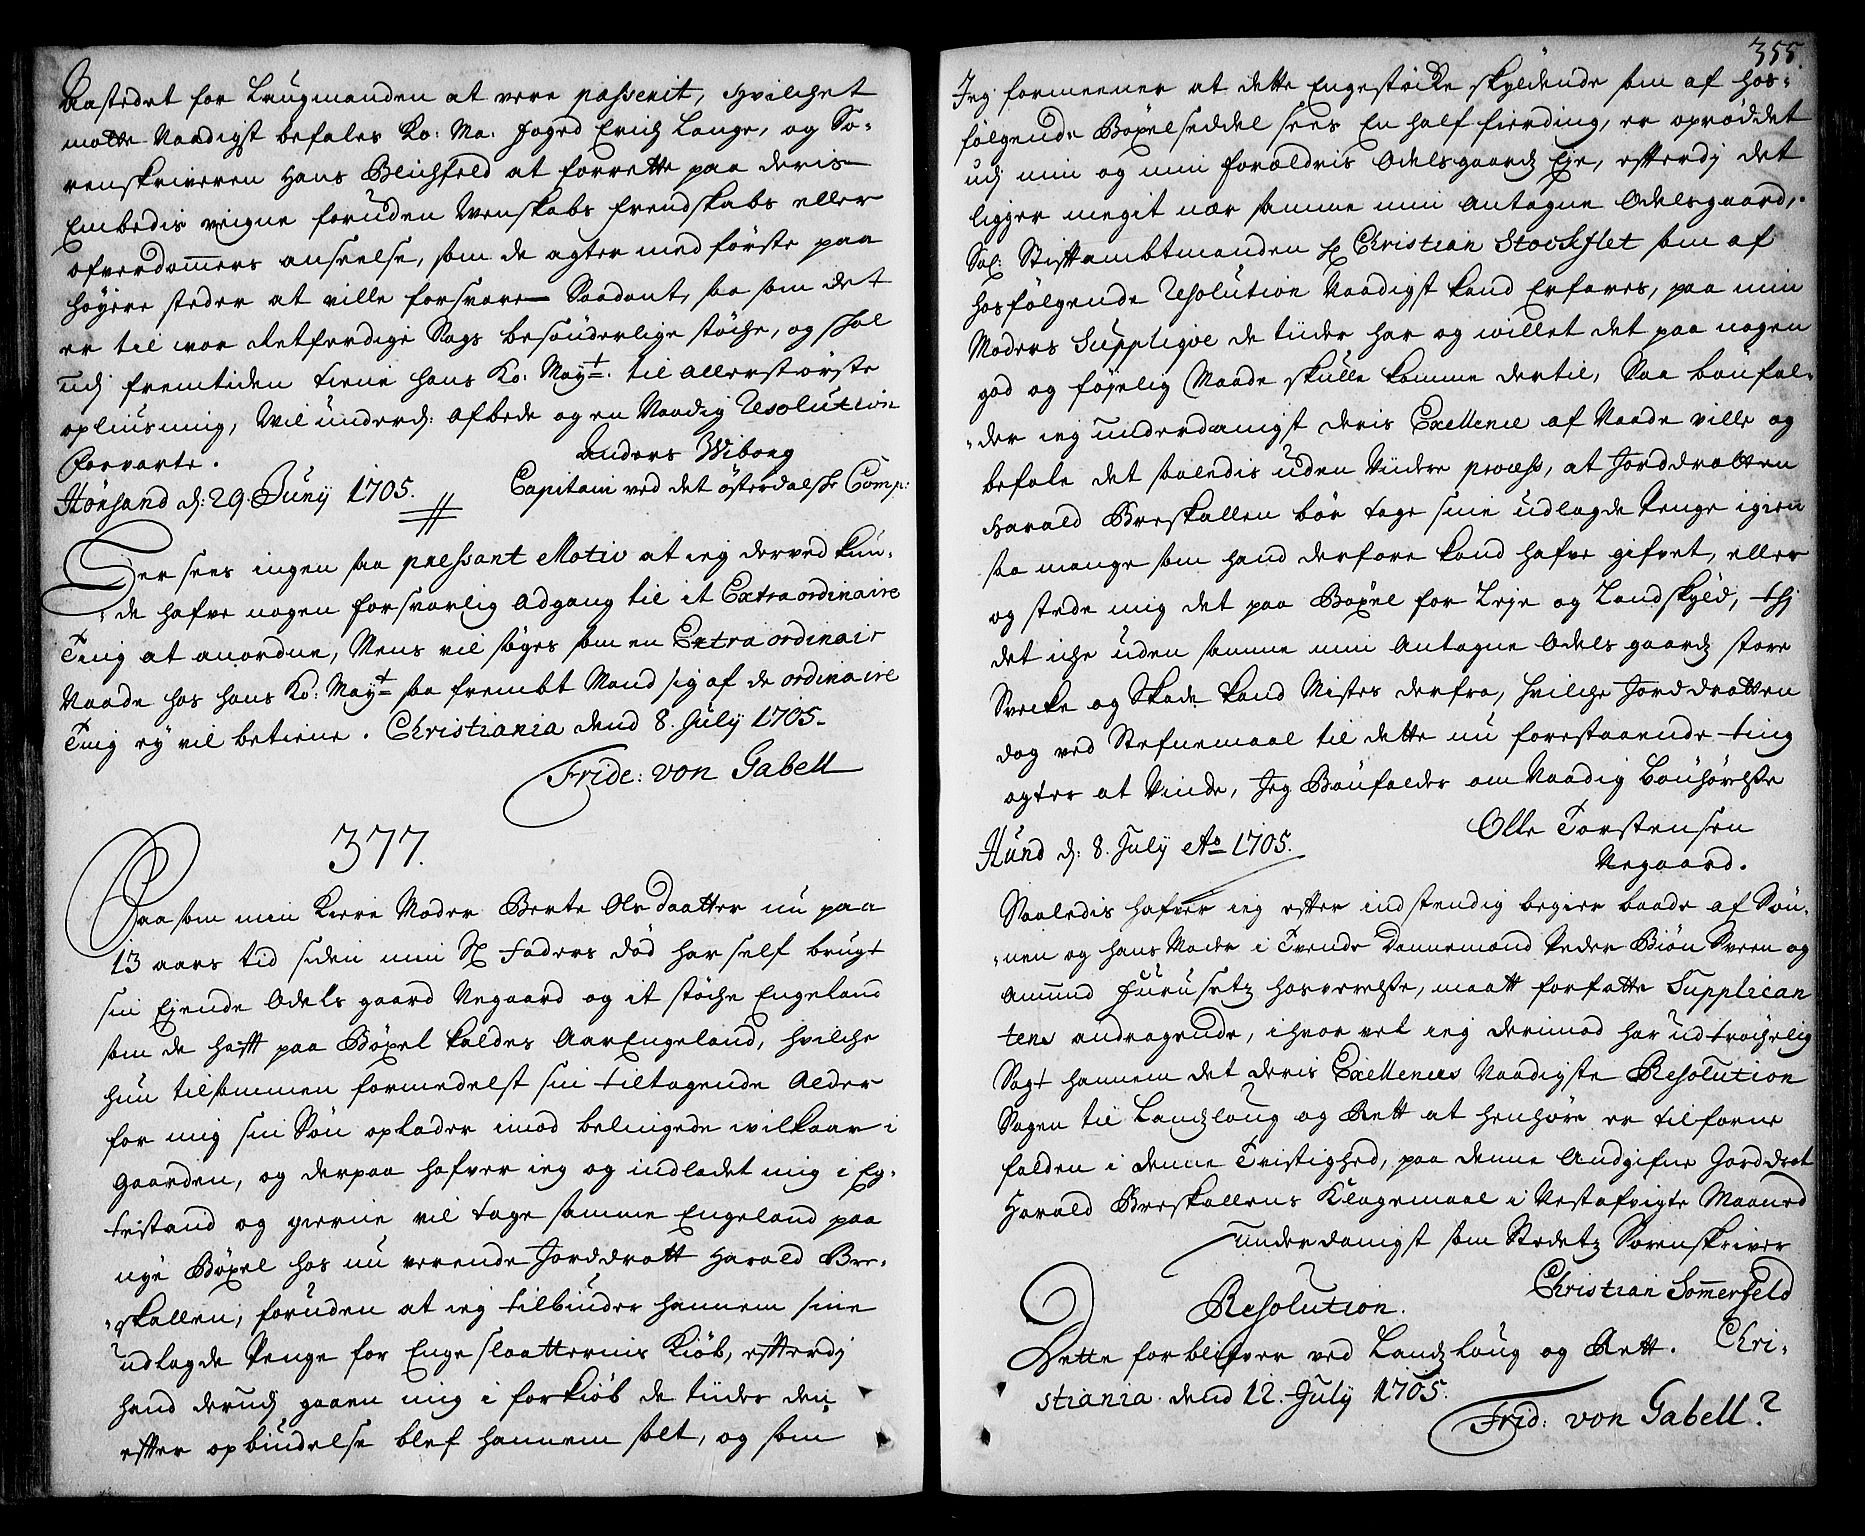 Aastedet for Laugmanden at vere passerit, hvilchet
motte Naadigst befales Ko: Ma: foged Erich Lange, og So-
renskriveren Hans Blichfeld at forrette paa deris
Embedis veigne foruden Wenskabs frendskabs eller
ofverdommers anseelse, som de agter med förste paa
höyere steder at ville forsvare Saadant, saa som det
er til vor Retferdige Sags besönderlige stöche, og skal
udj fremtiden tiene hans Ko: Mayt. til allerstörste
opliusning, Wil underd: afbede og en Naadig Resolution
forvarte.
Anders Wiborg
Hönsand d: 29. Junij 1705. Capitain ved det österdalske Comp:
Der sees ingen saa pressant Motiv at ieg derved kun-
de hafve nogen forsvarlig Adgang til it Extraordinaire
Ting at anordne, Mens vil söges som en Extraordinair
Naade hos hans Ko: Mayt saa frembt Mand sig af de ordinaire
Ting ey vil betiene. Christiania dend 8. July 1705.
Fride: von Gabell
377.
Saasom min Kiere Moder Berte Olsdaatter nu paa
13 aars tid siden min Sl Faders död har self brugt
sin Ejende Odels gaard Negaard og it stöche Engeland
som de hafft paa Böxel kaldes AarEngeland, hvilche
hun tilsammen formedelst sin tiltagende Alder
for mig sin Sön oplader imod belingede wilkaar i
Gaarden, og derpaa hafver ieg og indladet mig i Eg-
testand og gierne vil tage samme Engeland paa
nye Böxel hos nu verende Jorddrott Harald Bre-
skallen, foruden at ieg tilbinder hannem sine
udlagde Penge for Enge slaatternis Kiöb, efterdj
hand derudj gaaen mig i forkiöb de tiider den
efter opbindelse blef hannem solt, og som
355.
Jeg formeener at dette Engestöcke skyldende som af hos-
fölgende Böxelseddel sees En half fierding, er opröddet
udj min og min foreldris Odelsgaards Eje, efterdj det
ligger megit nær samme min Antagne Odelsgaard,
Sal: Stiftambtmanden Hr Christian Stockflet som af
hosfölgende Resolution Naadigst kand Erfares, paa min
Moders Suppliqve de tiider har og willet det paa nogen
god og föjelig Maade skulle komme dertil, Saa bönfal-
der ieg underdanigst deris Exellence af Naade ville og
befale det saaledis uden Viidere process, at Jorddrotten
Harald Breskallen bör tage sine udlagde Penge igien
saa mange som hand derfore kand hafve gifvet, eller
og stede mig det paa Böxel for Leje og Landskyld, thj
det iche uden samme min Antagne Odels gaards store
Svecke og Skade kand Mistes derfra, hvilche Jorddrotten
dog ved Stefnemaal til dette nu forestaaende ting
agter at Vinde, Jeg Bönfalder om Naadig bönhörelse
Olle Torstensen
Hund d: 8. July Ao 1705. Negaard.
Saaledis hafver ieg efter indstendig begier baade af Sön-
nen og hans Moder i Tvende Dannemænd Peder Biön Sveen og
Amund Furusets hosverelse, maatt forfatte Supplican
tens andragende, ihvorvel ieg derimod har udtrochelig
Sagt hannem det deris Exellences Naadigste Resolution
Sagen til Landslaug og Rett at henhöre er tilforne
falden i denne Tvistighed, paa denne Andgifne Jorddrot
Harald Breskallens Klagemaal i Nestafvigte Maaned
underdanigst som Stedets Sorenskriver
Christian Somerfeld
Resolution.
Dette forblifver ved Landslaug og Rett. Chri-
stiania dend 12. July 1705.
Frid: von Gabell